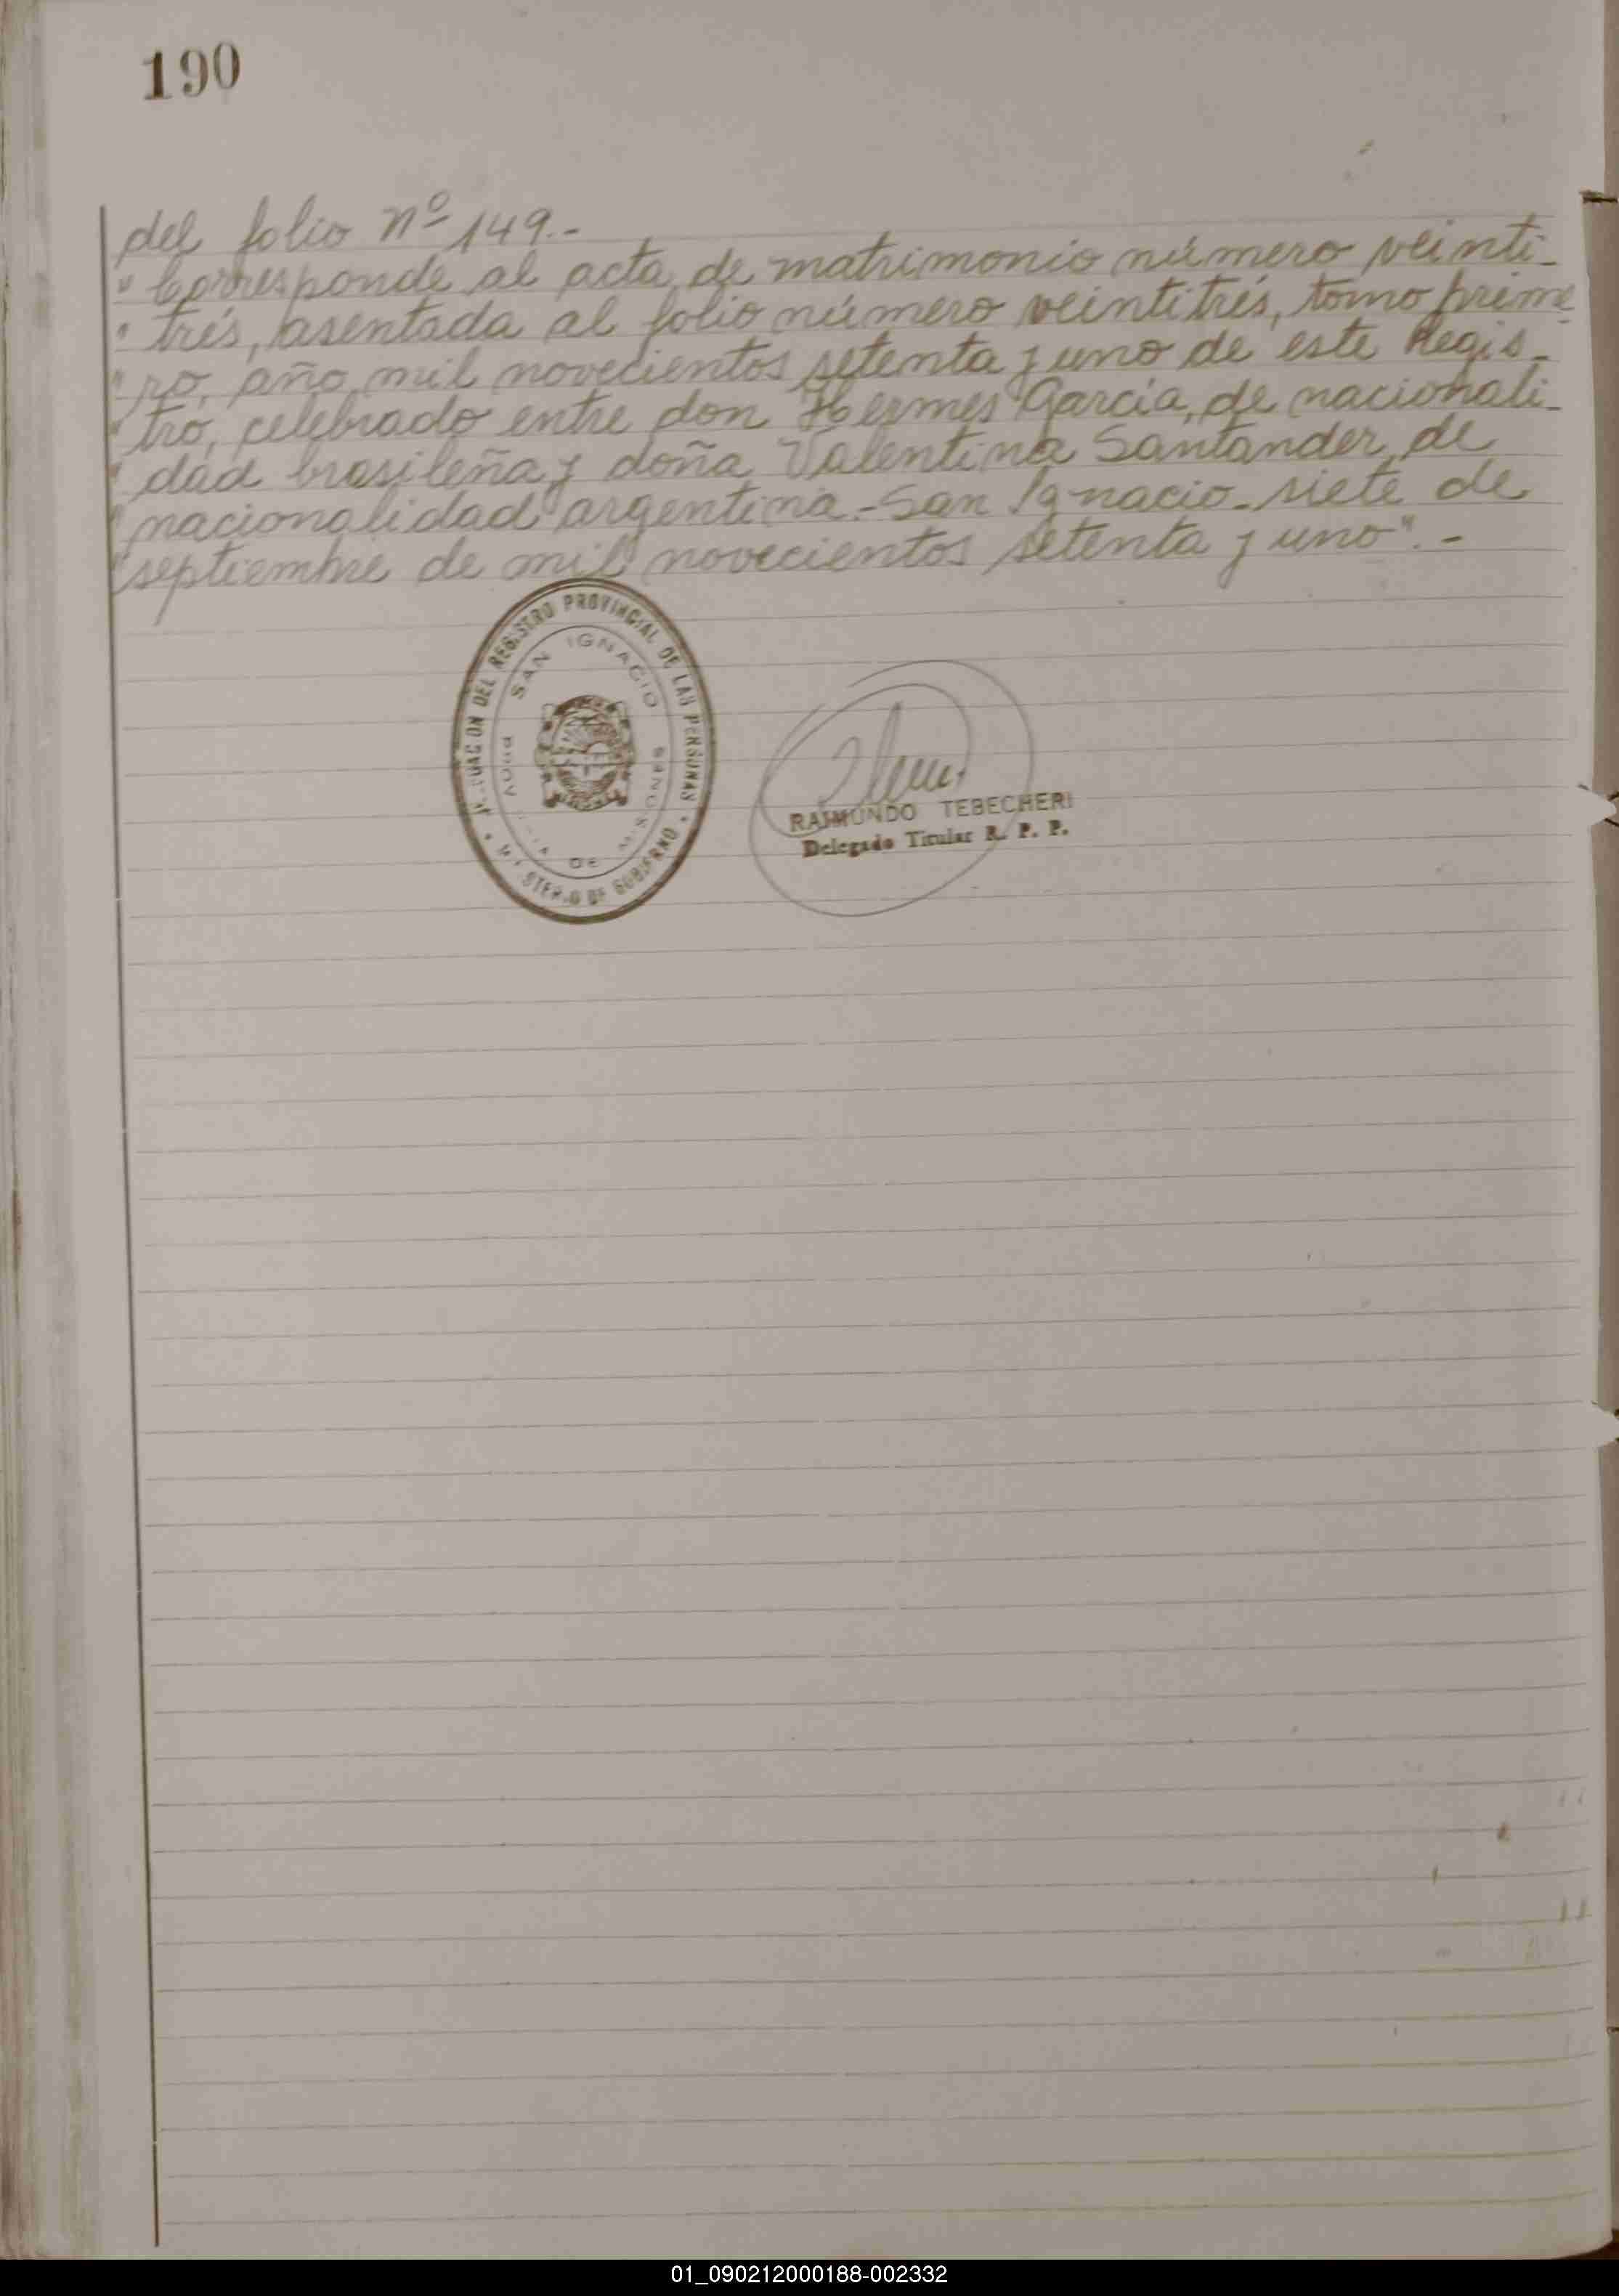 190
del folio nº 149.-
" Corresponde al acta de matrimonio número veinti-
" trés, asentada al folio número veintitrés, tomo prime
" ro, año mil novecientos setenta y uno de este Regis-
" tro, celebrado entre don Hermes García, de nacionali-
" dad brasileña y doña Valentina Santander, de
" nacionalidad argentina.- San Ignacio - siete de
" septiembre de mil novecientos setenta y uno".-
DEL REGISTRO PROVINCIAL DE LAS PERSONAS
SAN IGNACIO
DE MISIONES
DE GOBIERNO
RAIMUNDO TEBECHERI
Delegado Titular R. P. P.
01_090212000188-002332